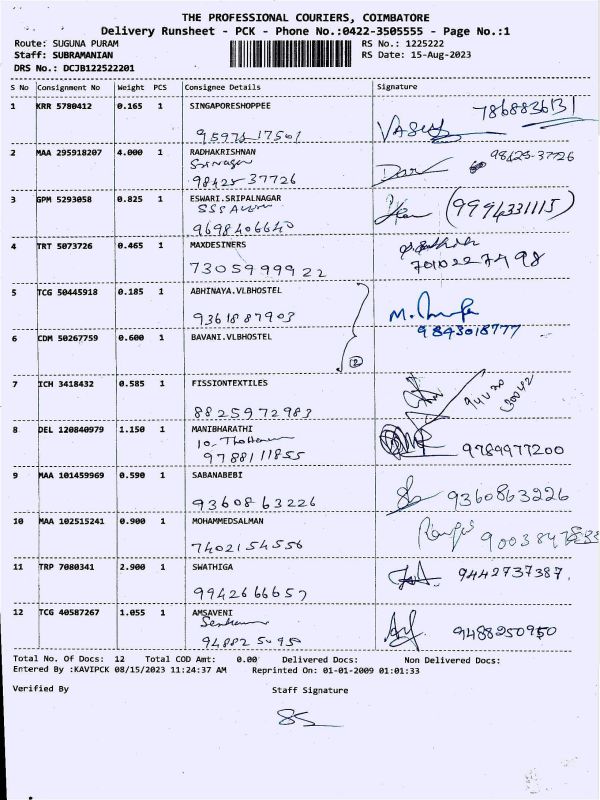 THE PROFESSIONAL COURIERS, COIMBATORE
Delivery Runsheet - PCK - Phone No.:0422-3505555 - Page No.:1
Route: SUGUNA PURAM RS No.: 1225222
Staff: SUBRAMANIAN RS Date: 15-Aug-2023
DRS No.: DCJB122522201
S No Consignment No Weight PCS Consignee Details Signature
1 KRR 5780412 0.165 1 SINGAPORESHOPPEE 7868836131
VASU
2 MAA 295918207 4.000 1 RADHAKRISHNAN 98425-37726
98425-37726
3 GPM 5293058 0.825 1 ESWARI.SRIPALNAGAR (9994331115)
9698406640
4 TRT 5073726 0.465 1 MAXDESINERS
7305999922
5 TCG 50445918 0.185 1 ABHINAYA.VLBHOSTEL
9361887903 9843018777
6 CDM 50267759 0.600 1 BAVANI.VLBHOSTEL
2
7 ICH 3418432 0.585 1 FISSIONTEXTILES
8825972983
8 DEL 120840979 1.150 1 MANIBHARATHI
9788111855 9789977200
9 MAA 101459969 0.590 1 SABANABEBI
9360863226 9360863226
10 MAA 102515241 0.900 1 MOHAMMEDSALMAN
7402154556
11 TRP 7080341 2.900 1 SWATHIGA 9442737387.
9942666657
12 TCG 40587267 1.055 1 AMSAVENI
9488250950 9488250950
Total No. Of Docs: 12 Total COD Amt: 0.00 Delivered Docs: Non Delivered Docs:
Entered By :KAVIPCK 08/15/2023 11:24:37 AM Reprinted On: 01-01-2009 01:01:33
Verified By Staff Signature